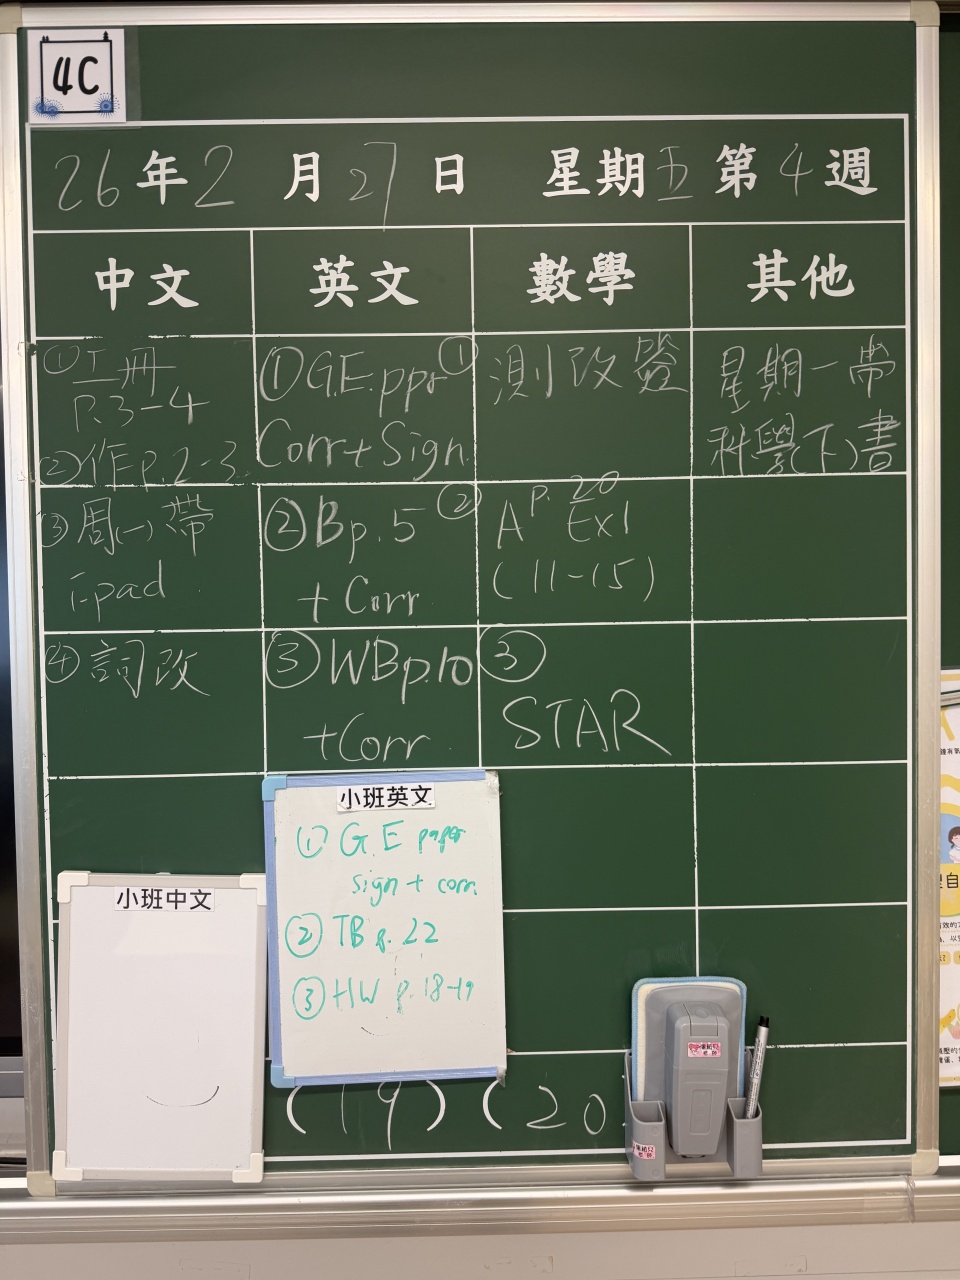 4C
26年2月27日 星期五 第4週
中文 英文 數學 其他
①工冊
P.3-4
②作p.2-3
③周(一)帶
i-pad
④詞改
①G.E.ppr
Corr+Sign
②Bp.5
+Corr
③WBp.10
+Corr
①測改簽
②A p.20
Ex1
(11-15)
③
STAR
星期一帶
科學(下)書
小班中文
小班英文
①G.E paper
sign + corr.
②TB p.22
③HW p.18-19
(19) (20